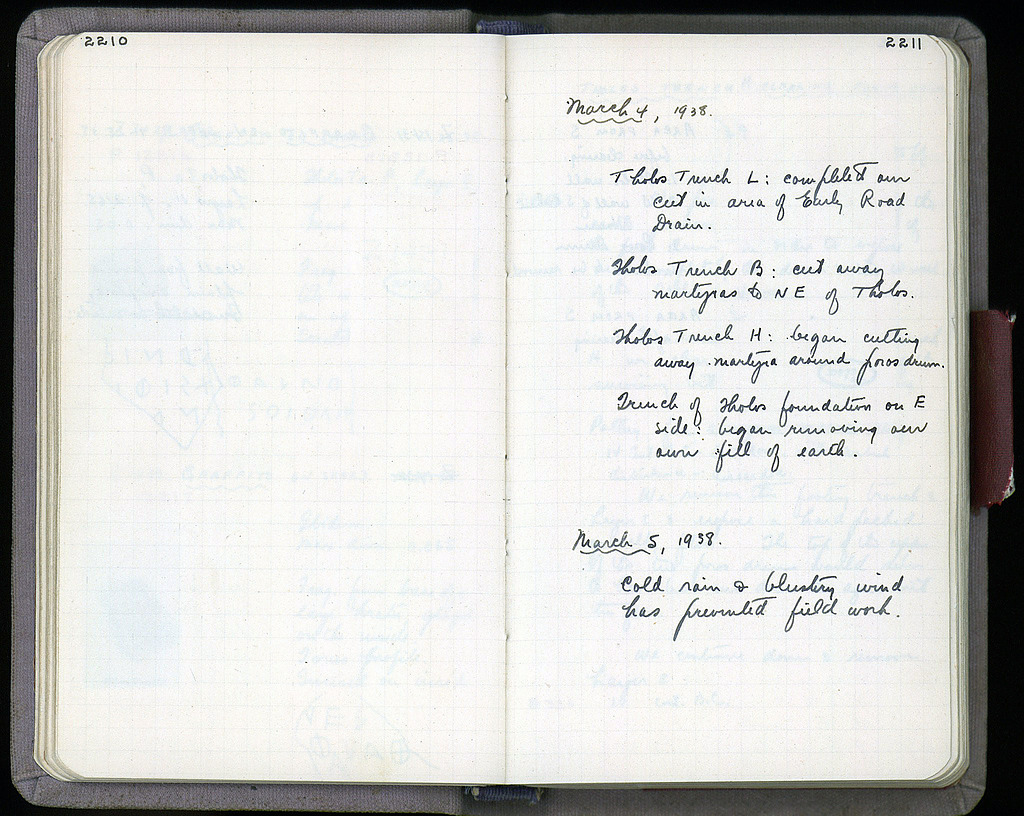 2210
2211
March 4, 1938.
Tholos Trench L: completed our
cut in area of Early Road
Drain.
Tholos Trench B: cut away
martyras to NE of Tholos.
Tholos Trench H: began cutting
away martyra around poros drum.
Trench of Tholos foundation on E
side: began removing our
own fill of earth.
March 5, 1938.
Cold rain & blustery wind
has prevented field work.